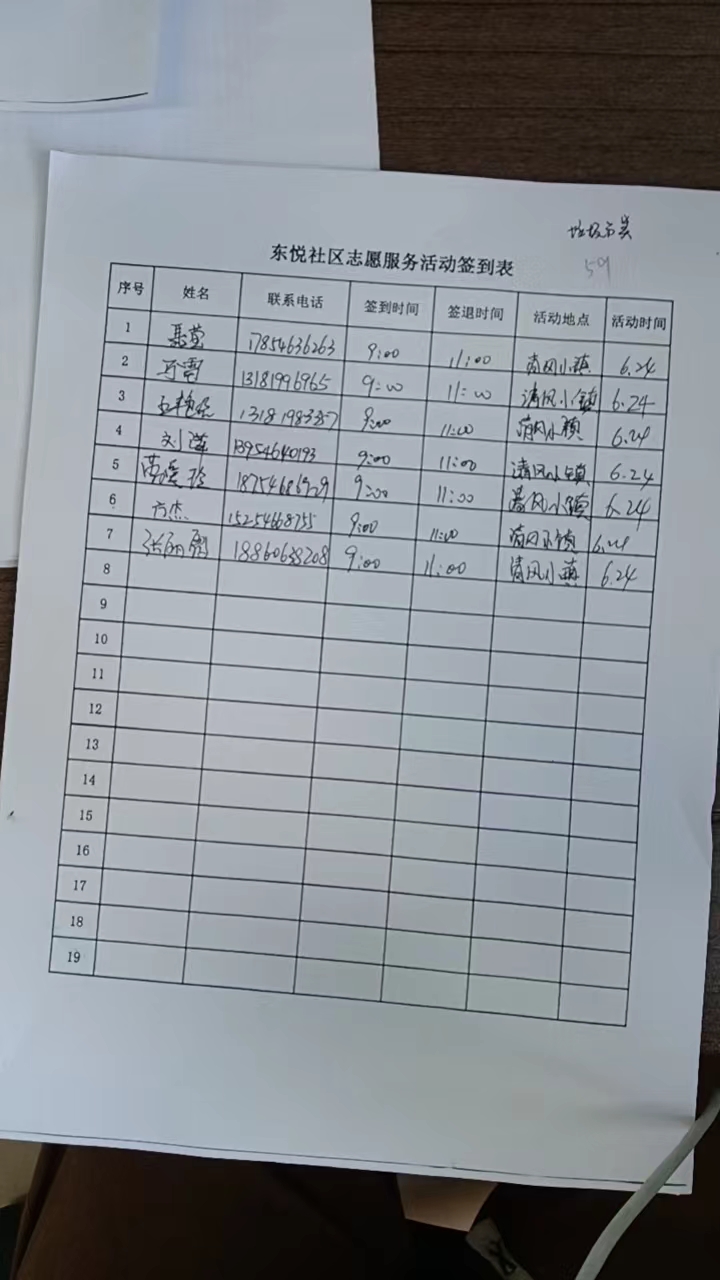 59
东悦社区志愿服务活动签到表
序号 姓名 联系电话 签到时间 签退时间 活动地点 活动时间
1 17854636263 9:00 11:00 清风小镇 6.24
2 13181996965 9:00 11:00 清风小镇 6.24
3 9:00 11:00 清风小镇 6.24
4 刘 13954640193 9:00 11:00 清风小镇 6.24
5 9:00 11:00 清风小镇 6.24
6 方杰 15254668755 9:00 11:00 清风小镇 6.24
7 张丽 18860638208 9:00 11:00 清风小镇 6.24
8
9
10
11
12
13
14
15
16
17
18
19